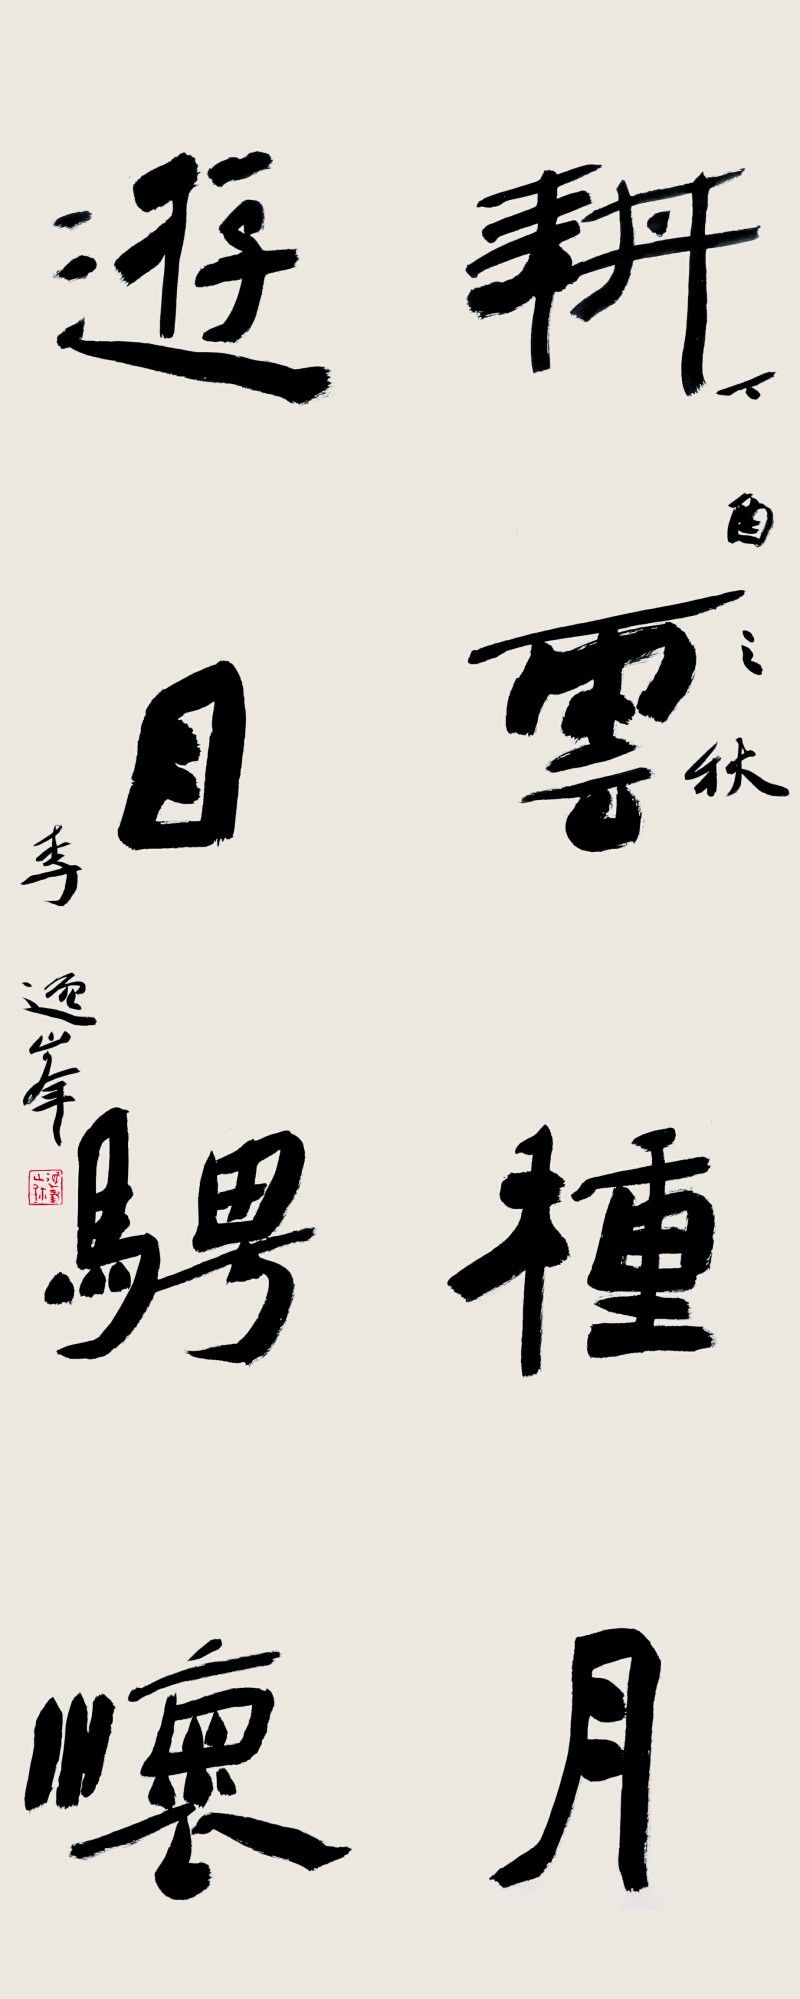 耕雲種月
丁酉之秋
遊目騁懷
李逸峰